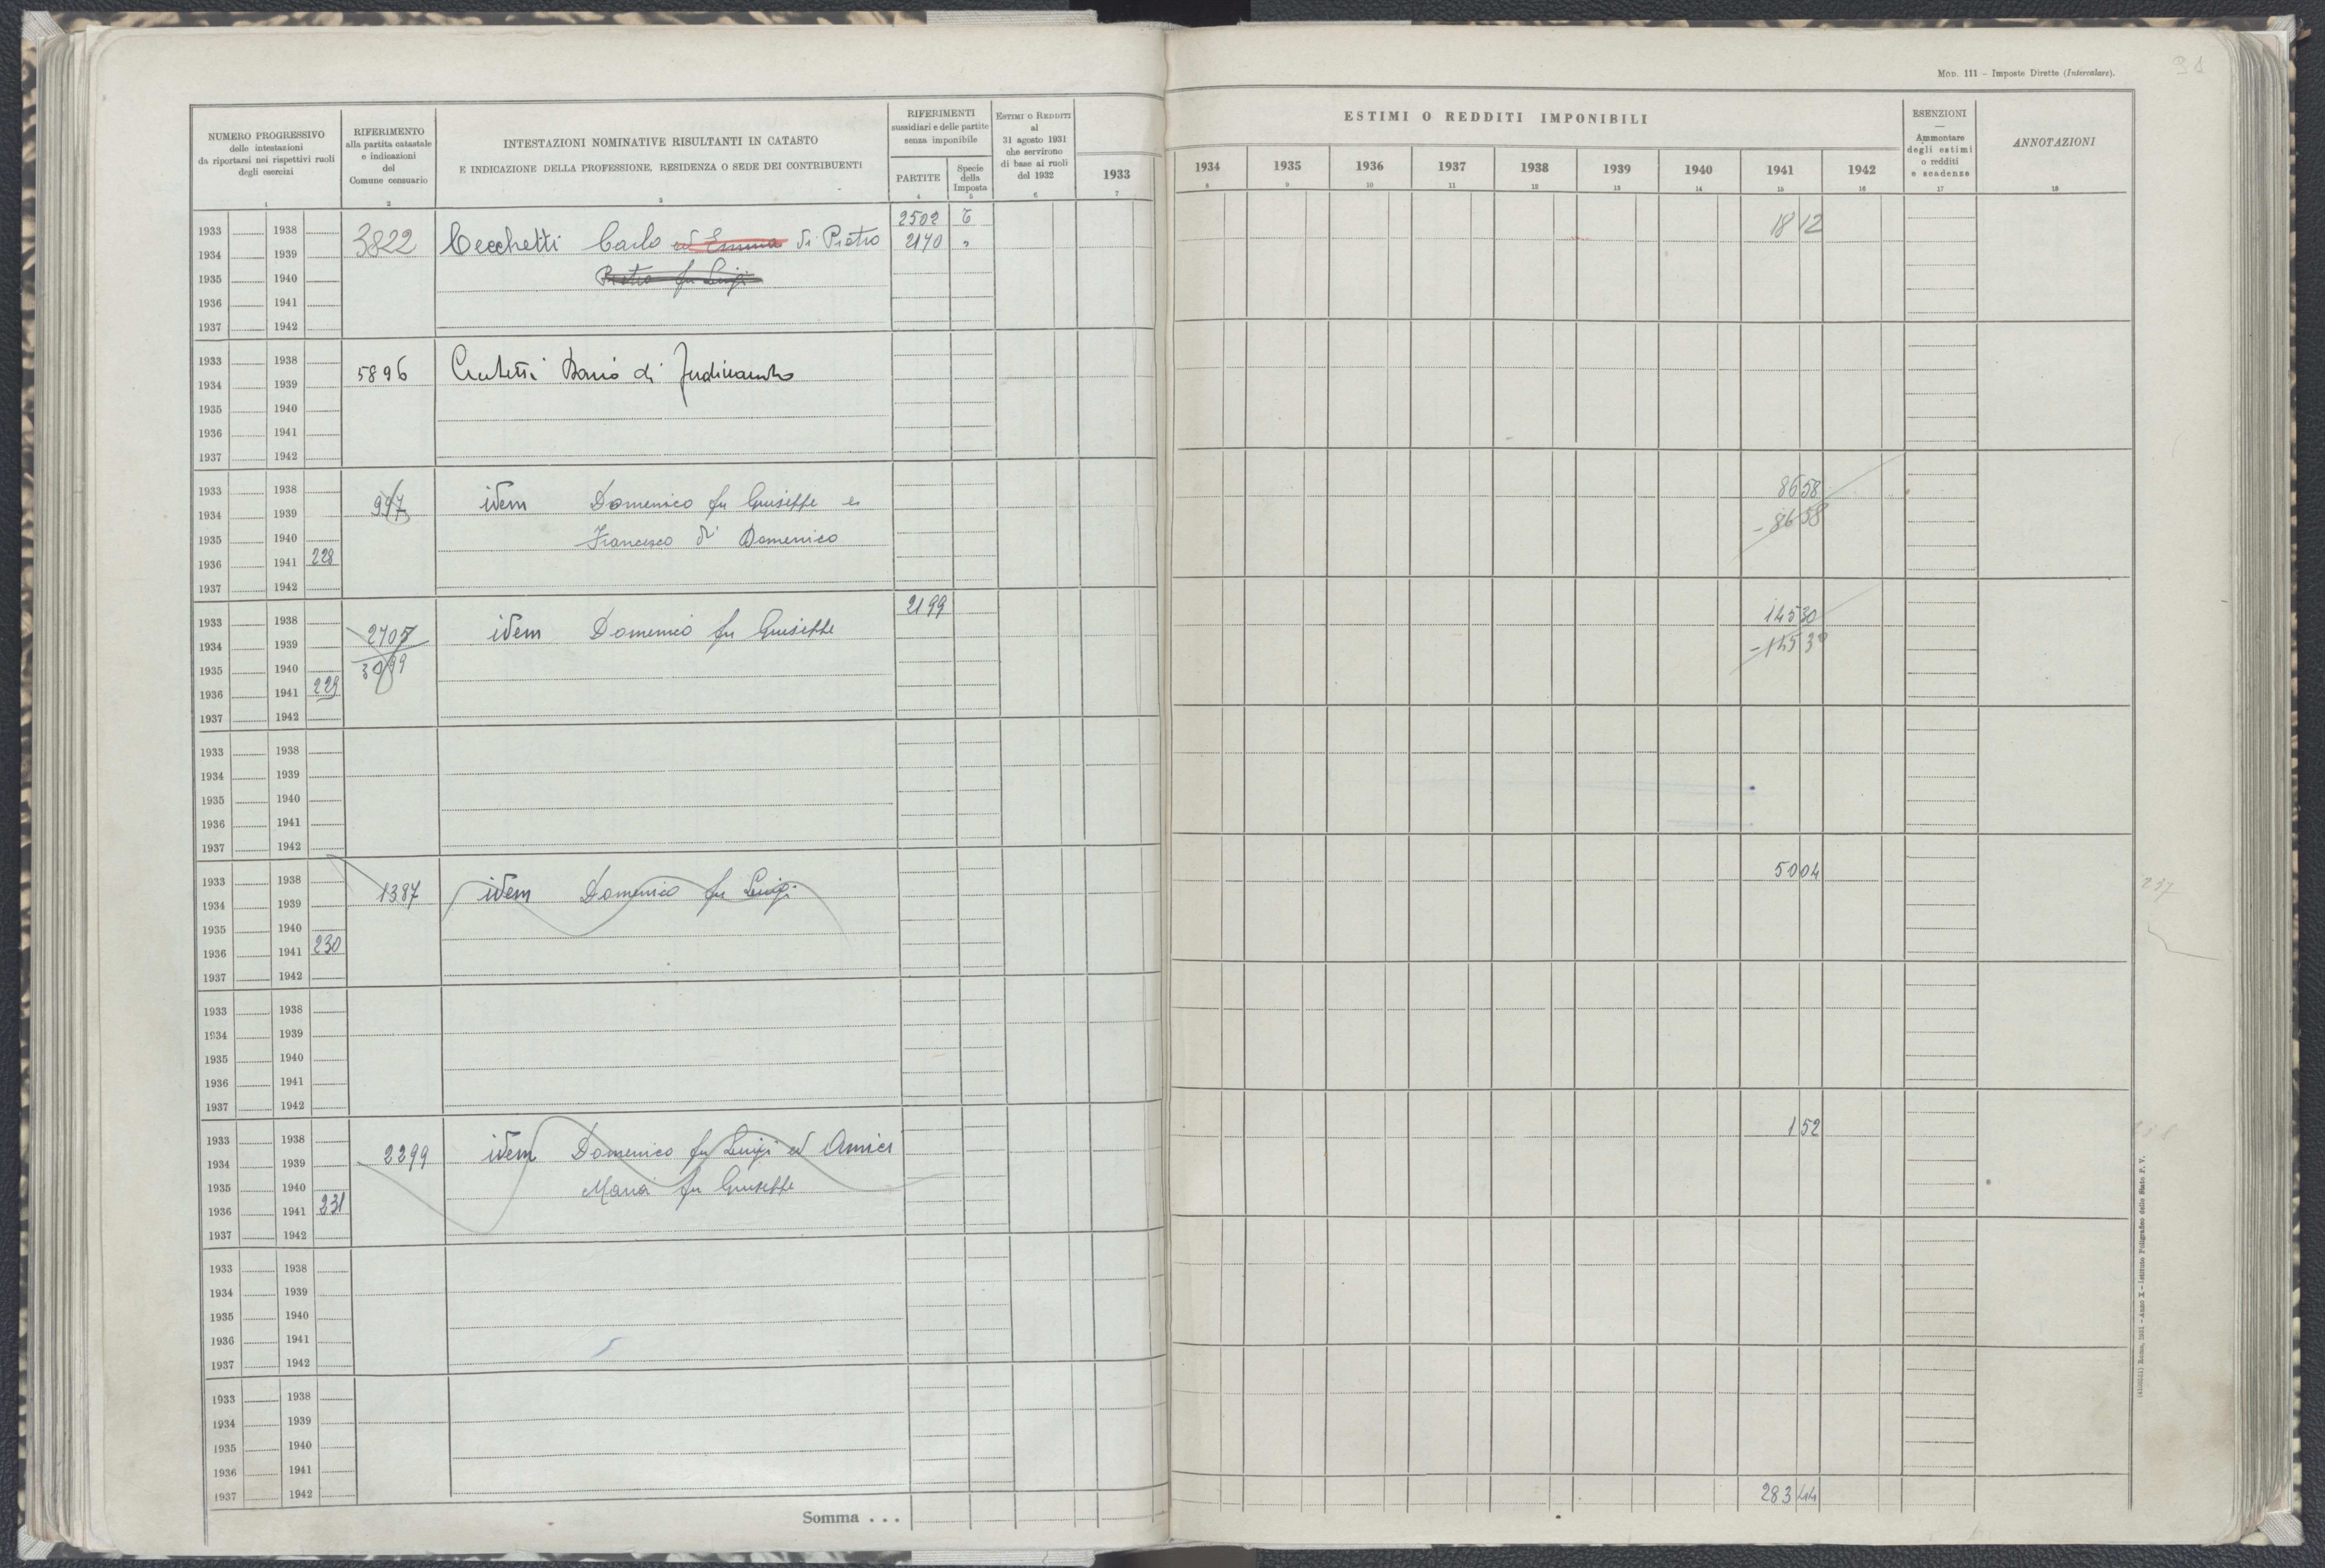 91
MOD. 111 - Imposte Dirette (Intercalare).
NUMERO PROGRESSIVO
delle intestazioni
da riportarsi nei rispettivi ruoli
degli esercizi
1
RIFERIMENTO
alla partita catastale
e indicazioni
del
Comune censuario
2
INTESTAZIONI NOMINATIVE RISULTANTI IN CATASTO
E INDICAZIONE DELLA PROFESSIONE, RESIDENZA O SEDE DEI CONTRIBUENTI
3
RIFERIMENTI
sussidiari e delle partite
senza imponibile
PARTITE
4
Specie
della
Imposta
5
ESTIMI O REDDITI
al
31 agosto 1931
che servirono
di base ai ruoli
del 1932
6
1933
7
ESTIMI O REDDITI IMPONIBILI
1934 1935 1936 1937 1938 1939 1940 1941 1942
8 9 10 11 12 13 14 15 16
ESENZIONI
Ammontare
degli estimi
o redditi
e scadenze
17
ANNOTAZIONI
18
2502 T
1933 1938 1812
1934 1939 3822 Cecchetti Carlo ed Emma di Pietro 2170 "
1935 1940 Pietro fu Luigi
1936 1941
1937 1942
1933 1938
1934 1939 5896 Dario di
1935 1940
1936 1941
1937 1942
1933 1938 8658
1934 1939 997 idem Domenico fu Giuseppe e - 8658
1935 1940 Francesco di Domenico
1936 1941 228
1937 1942
2199
1933 1938 14530
1934 1939 2705 idem Domenico fu Giuseppe - 14530
1935 1940 3099
1936 1941 229
1937 1942
1933 1938
1934 1939
1935 1940
1936 1941
1937 1942
1933 1938 5004
1934 1939 1387 idem Domenico fu Luigi 237
1935 1940
1936 1941 230
1937 1942
1933 1938
1934 1939
1935 1940
1936 1941
1937 1942
1933 1938 152
1934 1939 2299 idem Domenico fu Luigi ed Amici
1935 1940 Maria fu Giuseppe
1936 1941 231
1937 1942
1933 1938
1934 1939
1935 1940
1936 1941
1937 1942
1933 1938
1934 1939
1935 1940
1936 1941
1937 1942
Somma . . . 28344
Roma, 1931 - Anno X - Istituto Poligrafico dello Stato P. V.